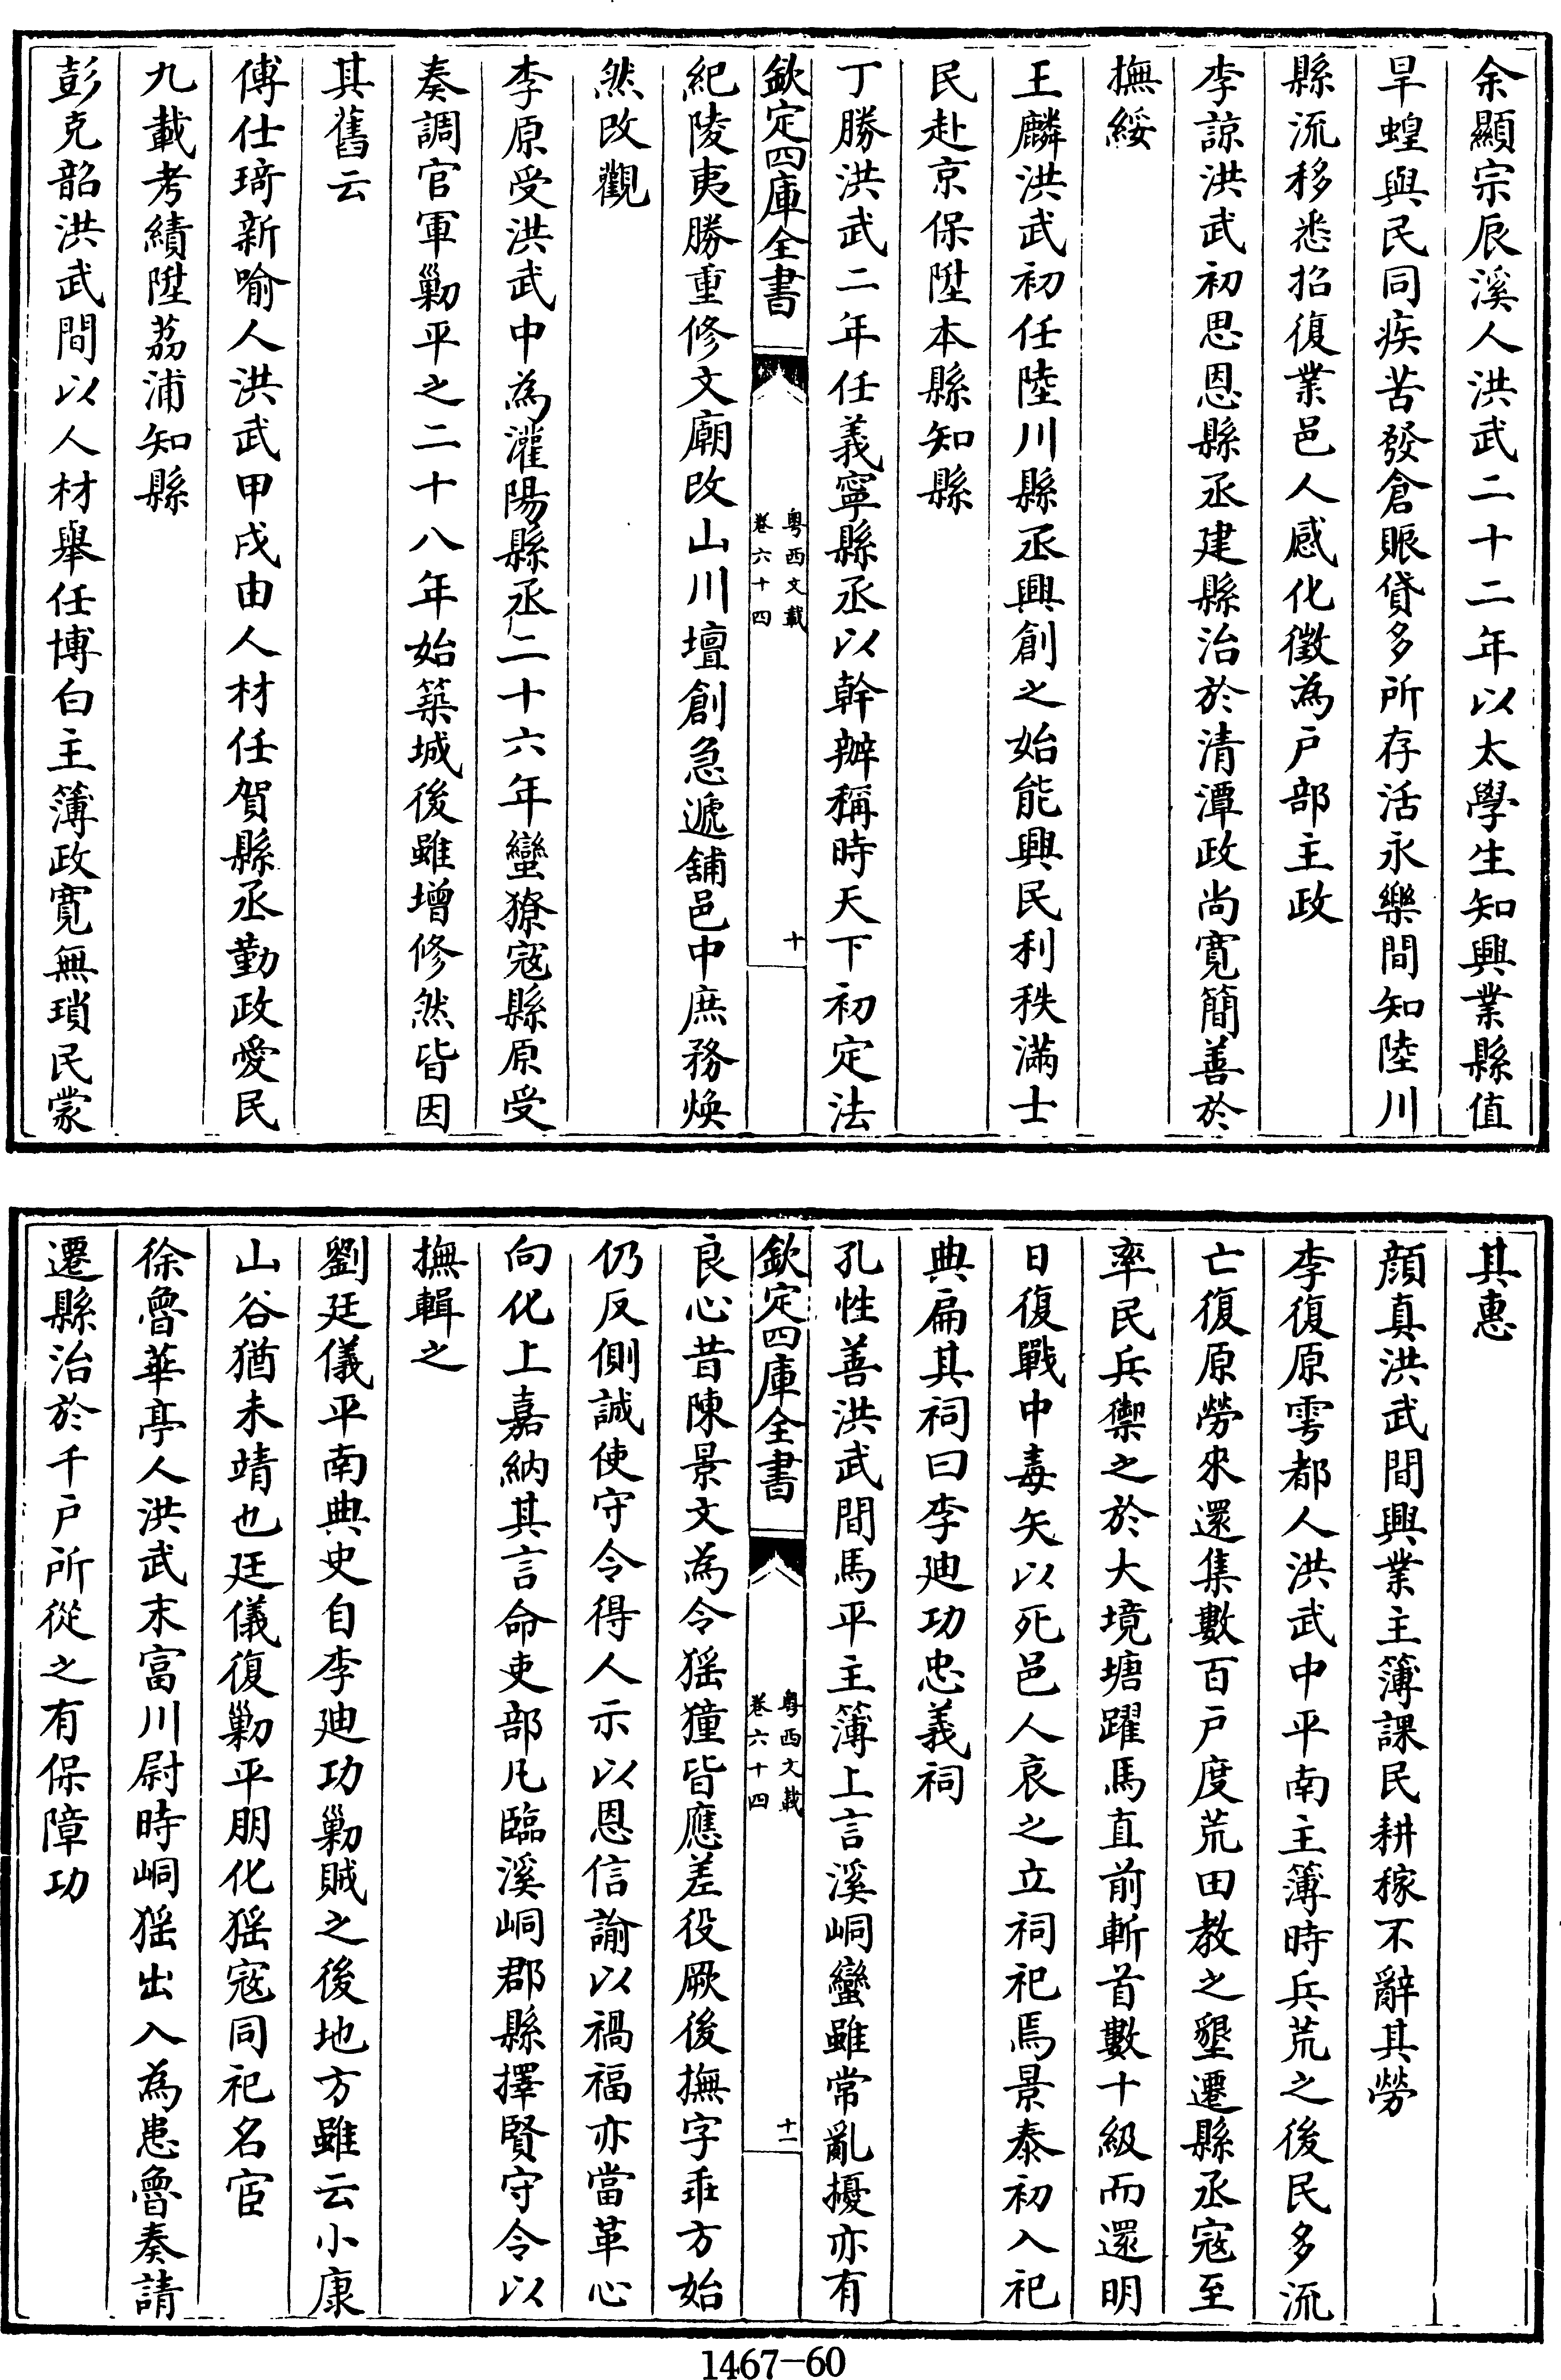 余顯宗辰溪人洪武二十二年以太學生知興業縣值
旱蝗與民同疾苦發倉賑貸多所存活永樂間知陸川
縣流移悉招復業邑人感化徵為戶部主政
李諒洪武初思恩縣丞建縣治於清潭政尚寛簡善於
撫綏
王麟洪武初任陸川縣丞興創之始能興民利秩滿士
民赴京保陞本縣知縣
丁勝洪武二年任義寧縣丞以幹辦稱時天下初定法
欽定四庫全書
粤西文載
卷六十四
十
紀陵夷勝重修文廟改山川壇創急遞舖邑中庶務煥
然改觀
李原受洪武中為灌陽縣丞二十六年蠻獠寇縣原受
奏調官軍勦平之二十八年始築城後雖增修然皆因
其舊云
傅仕琦新喻人洪武甲戌由人材任賀縣丞勤政愛民
九載考績陞荔浦知縣
彭克韶洪武間以人材舉任博白主簿政寛無瑣民蒙
其惠
顏真洪武間興業主簿課民耕稼不辭其勞
李復原雩都人洪武中平南主簿時兵荒之後民多流
亡復原勞來還集數百戶度荒田教之墾遷縣丞寇至
率民兵禦之於大境塘躍馬直前斬首數十級而還明
日復戰中毒矢以死邑人哀之立祠祀焉景泰初入祀
典扁其祠曰李廸功忠義祠
孔性善洪武間馬平主簿上言溪峒蠻雖常亂擾亦有
欽定四庫全書
粤西文載
卷六十四
十一
良心昔陳景文為令猺獞皆應差役厥後撫字乖方始
仍反側誠使守令得人示以恩信諭以禍福亦當革心
向化上嘉納其言命吏部凡臨溪峒郡縣擇賢守令以
撫輯之
劉廷儀平南典史自李廸功勦賊之後地方雖云小康
山谷猶未靖也廷儀復勦平朋化猺寇同祀名宦
徐魯華亭人洪武末富川尉時峒猺出入為患魯奏請
遷縣治於千戶所從之有保障功
1467-60